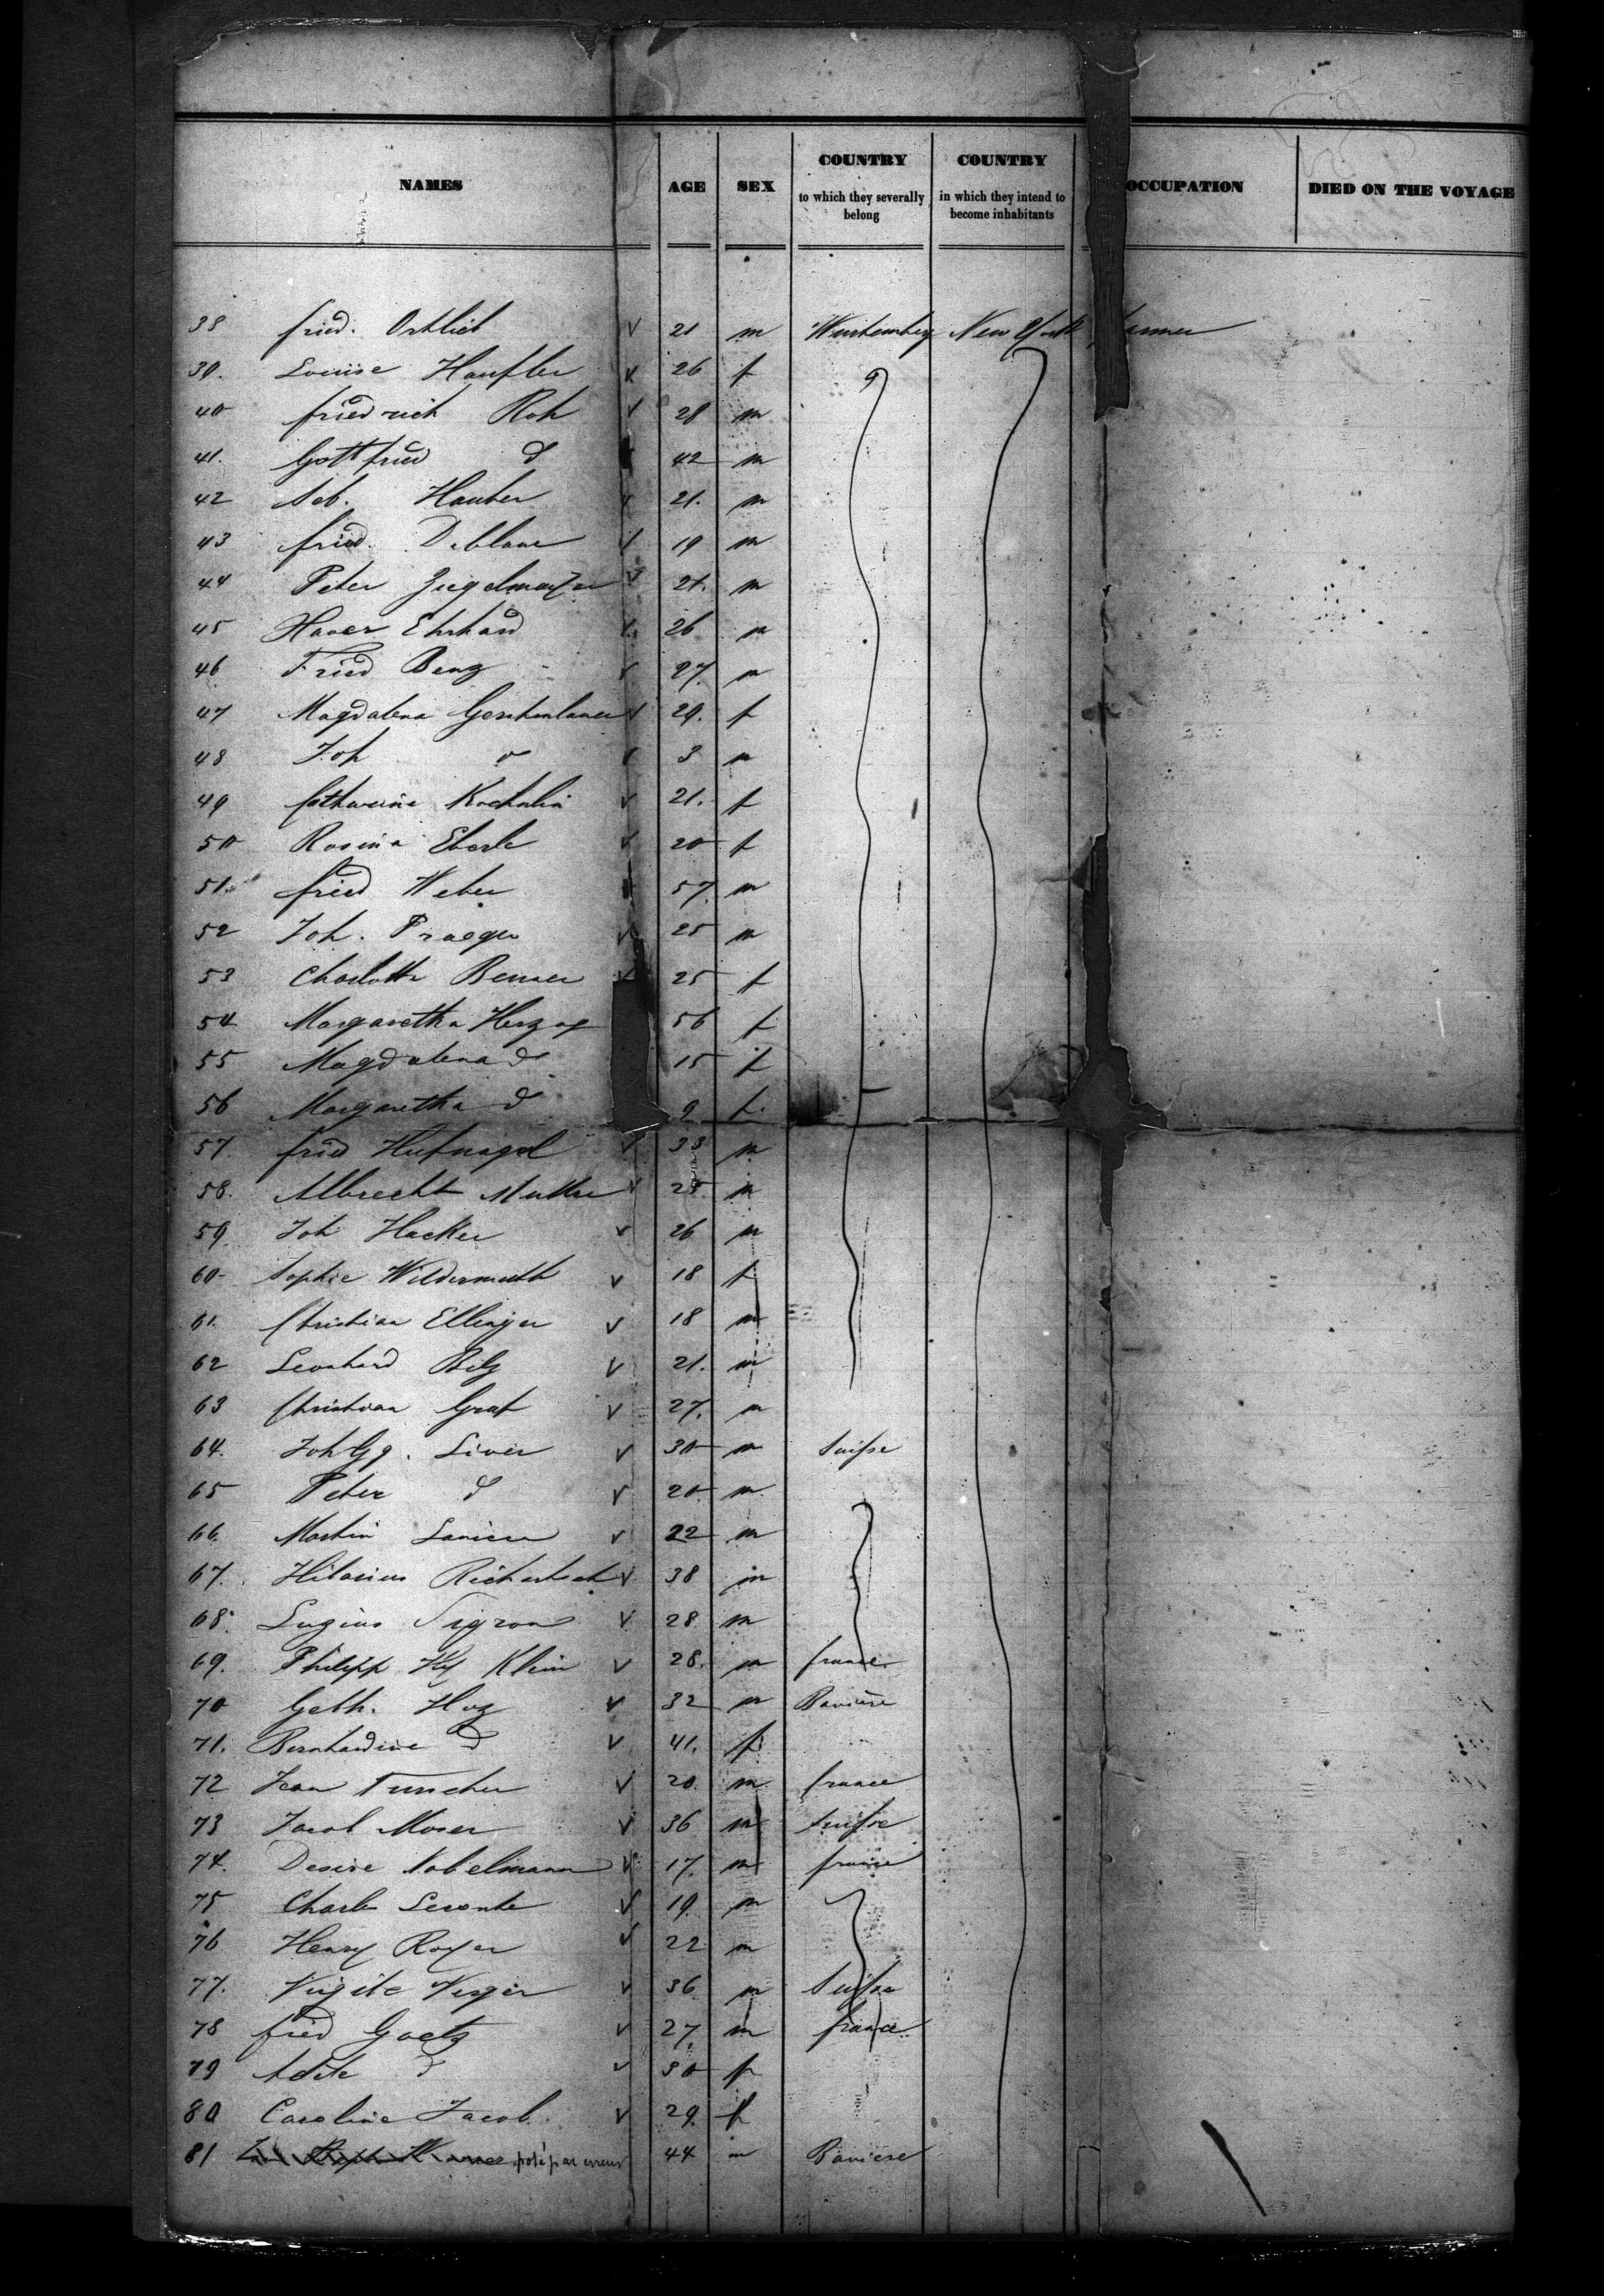 NAMES AGE SEX COUNTRY to which they severally belong COUNTRY in which they intend to become inhabitants OCCUPATION DIED ON THE VOYAGE
38 fried. Ortlieb 21 m Wurtemberg New York farmer
39. Louise Haufler 26 f
40 friedrich Roh 28 m
41. Gottfried d 42 m
42 Seb. Hauber 21. m
43 fried. 19 m
44 Peter Ziegelmayer 21. m
45 Xaver Ehrhard 26 m
46 Fried Benz 27. m
47 Magdalena Gerstenlauer 29. f
48 Joh d 3 m
49 Catharine Koechlin 21. f
50 Rosina Eberle 20 f
51. fried Weber 57. m
52 Joh. Praeger 25 m
53 Charlotte 25 f
54 Margaretha Herzog 56 f
55 Magdalena d 15 f
56 Margaretha d 9 f.
57. fried Hufnagel 33 m
58. Albrecht Muller 25 m
59 Joh Hacker 26 m
60 Sophie Wildermuth 18 f
61. Christian Ellinger 18 m
62 Leonhard Belz 21. m
63 Christian Graf 27. m
64. Joh Gg. Liver 30 m Suisse
65 Peter d 20 m
66. Martin 22 m
67. Hilarius 38 m
68. Luzius 28 m
69. Philipp Hy Klein 28. m france
70 Gebh. Hug 32 m Baviere
71. Bernhardine d 41. f
72 Jean 20. m france
73 Jacob Moser 36 m Suisse
74. Desire Nobelmann 17. m france
75 Charle Leconte 19 m
76 Henry Royer 22 m
77. 36 m Suisse
78 fried Goetz 27. m france
79 Adele d 30 f
80 Caroline Jacob 29. f
81 posé par erreur 44 m Baviere